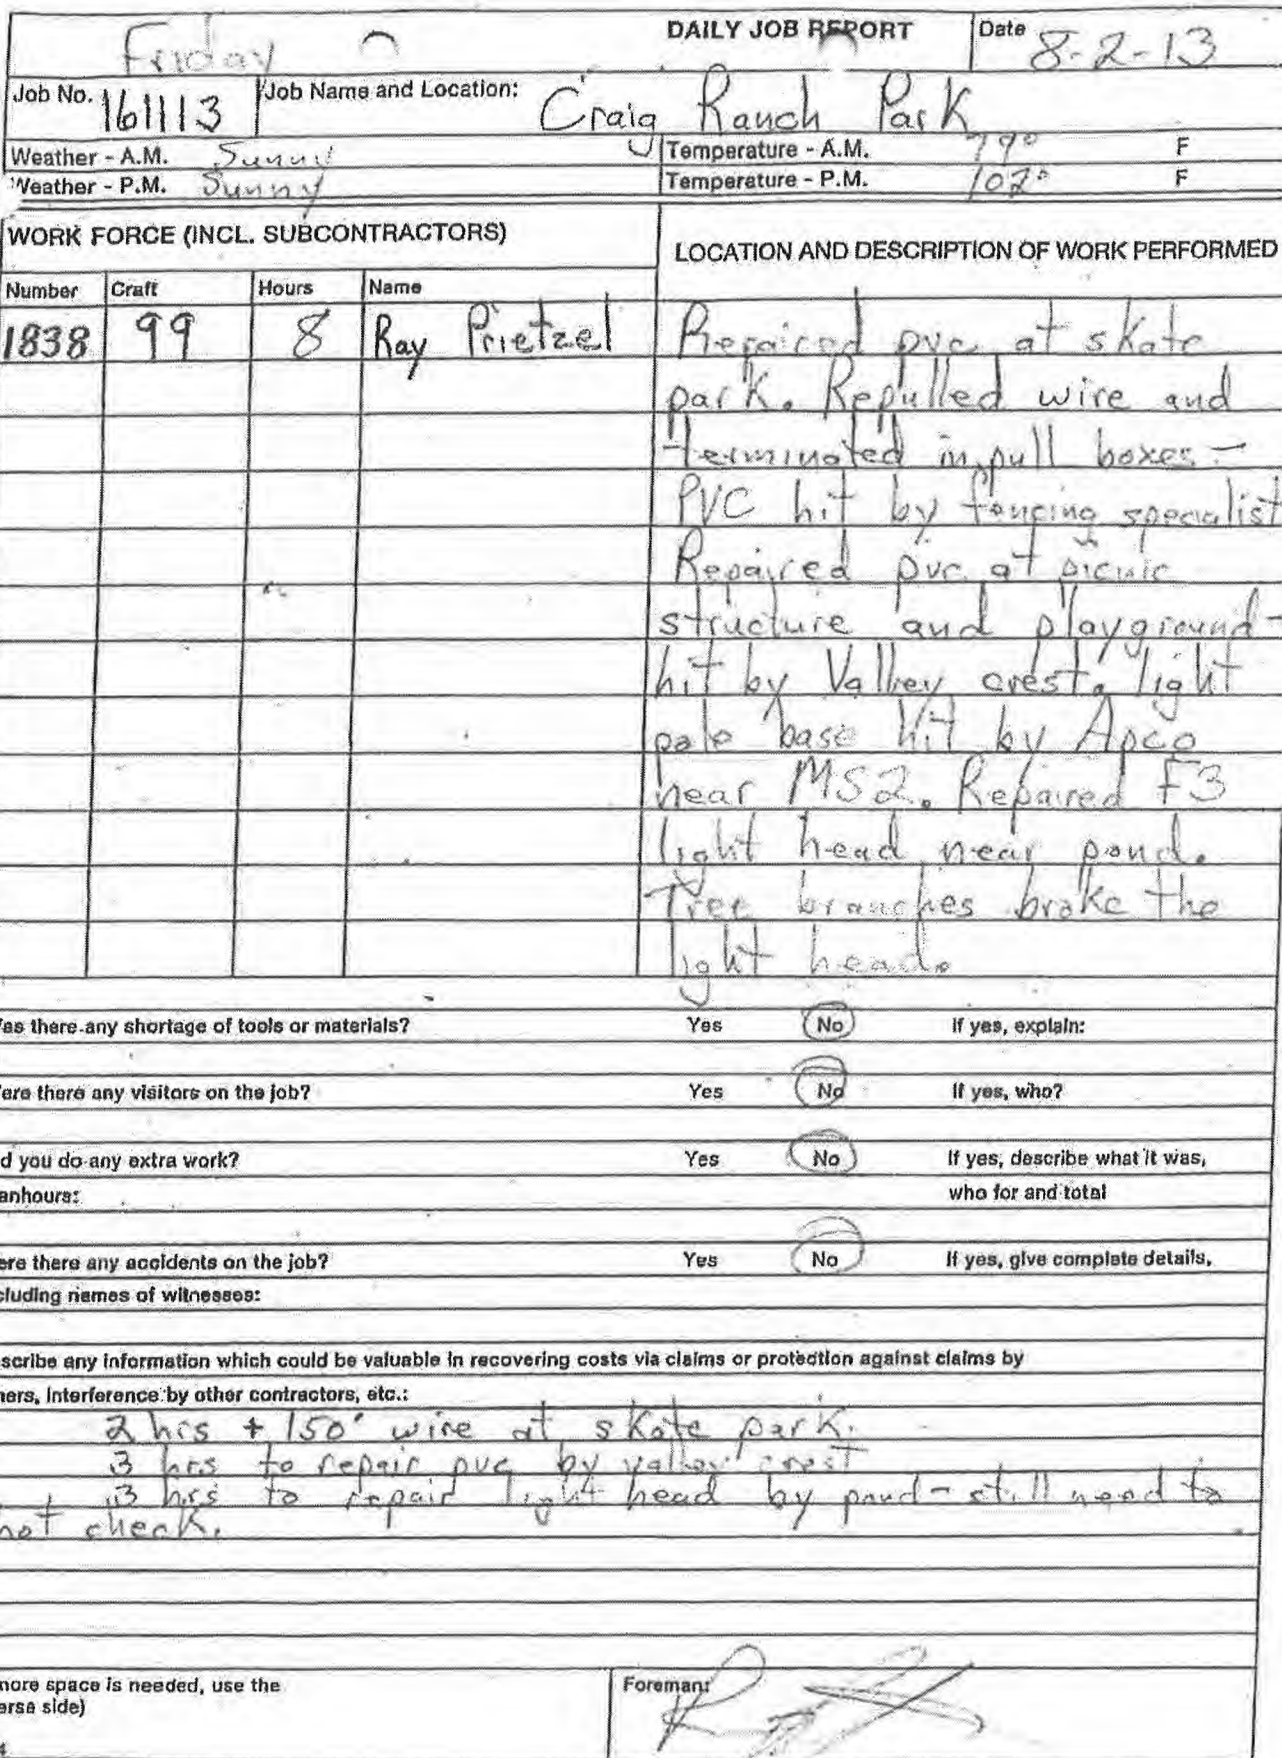 Friday
DAILY JOB REPORT
Date 8-2-13
Job No. 161113
Job Name and Location: Craig Ranch Park
Weather - A.M. Sunny
Temperature - A.M. 79° F
Weather - P.M. Sunny
Temperature - P.M. 102° F
WORK FORCE (INCL. SUBCONTRACTORS)
LOCATION AND DESCRIPTION OF WORK PERFORMED
Number Craft Hours Name
1838 99 8 Ray Prietzel
Repaired pvc at skate
park. Repulled wire and
terminated in pull boxes -
PVC hit by fencing specialist
Repaired pvc at picnic
structure and playground -
hit by Valley crest. light
pole base hit by Apco
near MS2. Repaired F3
light head near pond.
Tree branches broke the
light head.
as there any shortage of tools or materials? Yes No If yes, explain:
ere there any visitors on the job? Yes No If yes, who?
d you do any extra work? Yes No If yes, describe what it was,
anhours: who for and total
ere there any accidents on the job? Yes No If yes, give complete details,
cluding names of witnesses:
scribe any information which could be valuable in recovering costs via claims or protection against claims by
hers, interference by other contractors, etc.:
2 hrs + 150' wire at skate park.
3 hrs to repair pvc by valley crest
3 hrs to repair light head by pond - still need to
hot check.
more space is needed, use the
erse side)
Foreman: